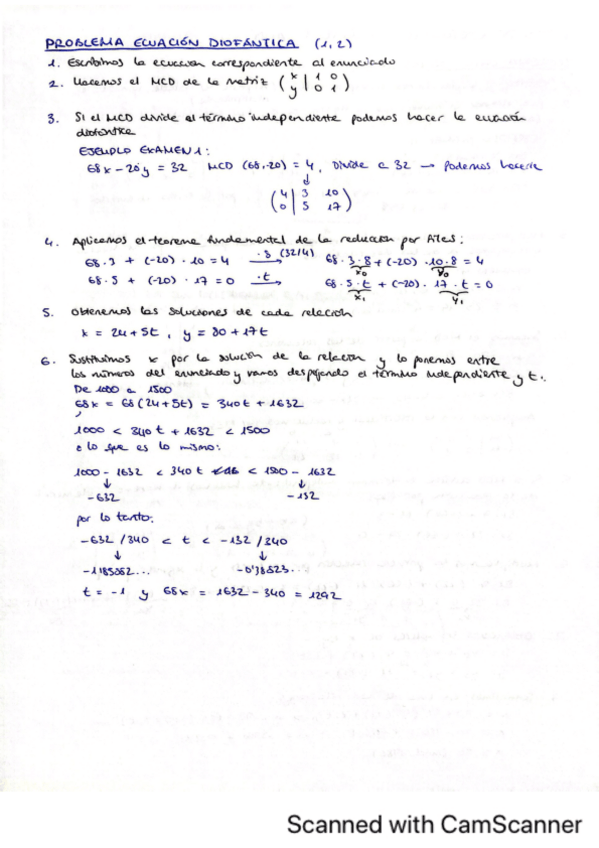 PROBLEMA ECUACIÓN DIOFÁNTICA (1,2)
1. Escribimos la ecuación correspondiente al enunciado
2. Hacemos el MCD de la matriz ( x | 1 0
y | 0 1 )
3. Si el MCD divide al término independiente podemos hacer la ecuación
diofántica
EJEMPLO EXAMEN 1:
68x - 20y = 32 MCD (68,-20) = 4, Divide a 32 → Podemos hacerla
↓
( 4 | 3 10
0 | 5 17 )
4. Aplicamos el teorema fundamental de la reducción por
68·3 + (-20)·10 = 4 ·8 (32/4) → 68·3·8 + (-20)·10·8 = 4
x₀ y₀
68·5 + (-20)·17 = 0 ·t → 68·5·t + (-20)·17·t = 0
x₁ y₁
5. Obtenemos las soluciones de cada relación
x = 24+5t, y = 80+17t
6. Sustituimos x por la solución de la relación y lo ponemos entre
los números del enunciado y vamos despejando el término independiente y t.
De 1000 a 1500
68x = 68(24+5t) = 340t + 1632
1000 < 340t + 1632 < 1500
o lo que es lo mismo:
1000 - 1632 < 340t < 1500 - 1632
↓ ↓
-632 -132
por lo tanto:
-632/340 < t < -132/340
↓ ↓
-1'85882... -0'38823...
t = -1 y 68x = 1632 - 340 = 1292
Scanned with CamScanner